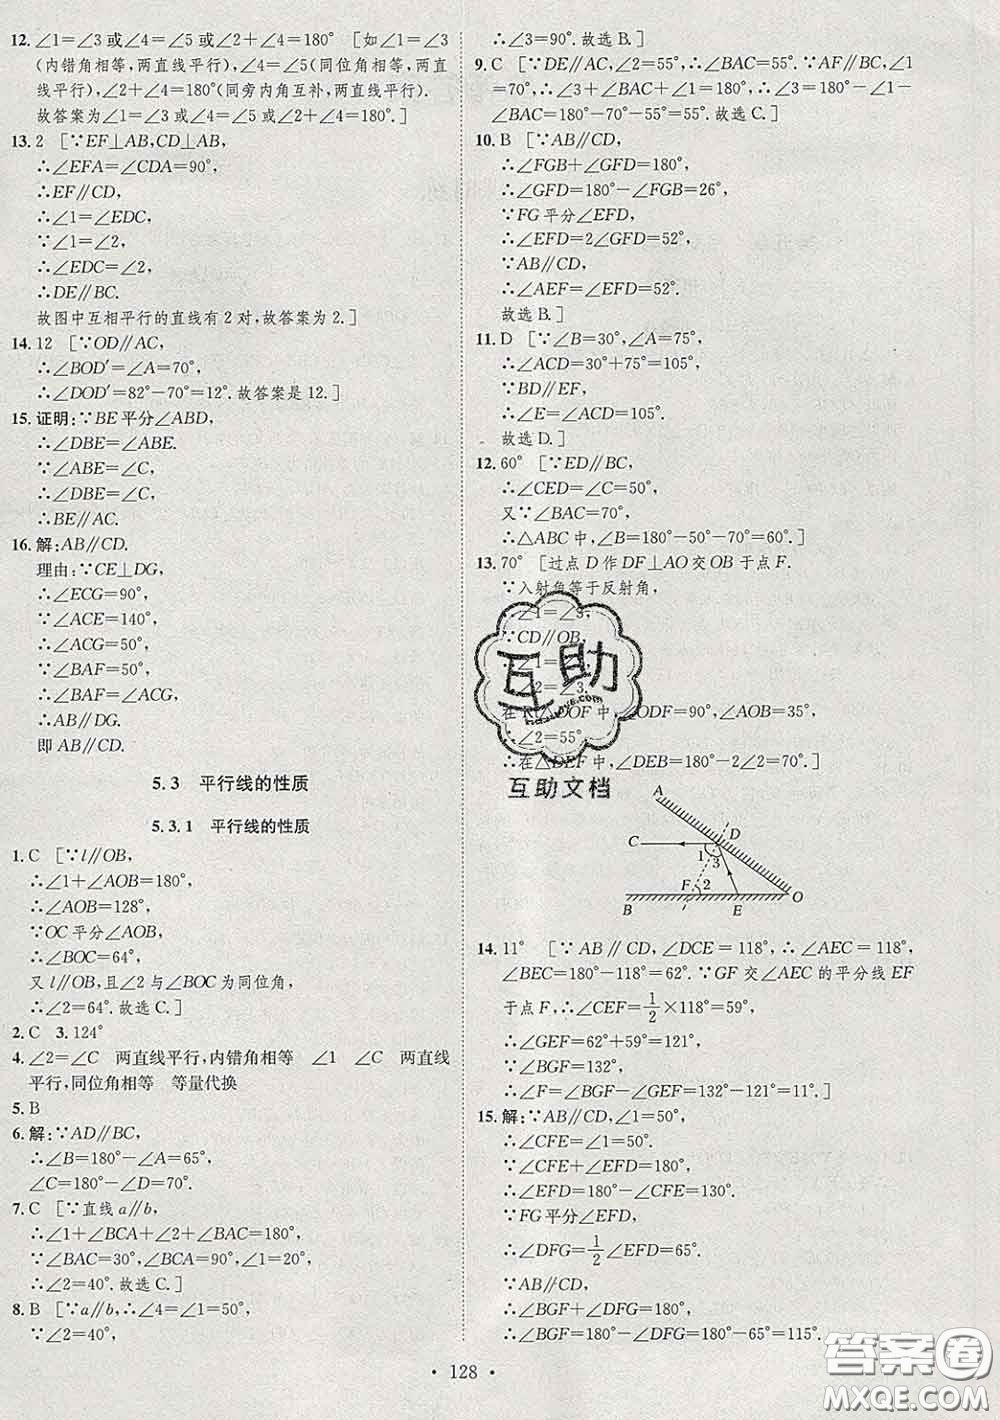 12. ∠1=∠3 或∠4=∠5 或∠2+∠4=180° [如∠1=∠3
(内错角相等,两直线平行),∠4=∠5(同位角相等,两直
线平行),∠2+∠4=180°(同旁内角互补,两直线平行).
故答案为∠1=∠3 或∠4=∠5 或∠2+∠4=180°.]
13. 2 [∵EF⊥AB,CD⊥AB,
∴∠EFA=∠CDA=90°,
∴EF∥CD,
∴∠1=∠EDC,
∵∠1=∠2,
∴∠EDC=∠2,
∴DE∥BC.
故图中互相平行的直线有 2 对,故答案为 2.]
14. 12 [∵OD′∥AC,
∴∠BOD′=∠A=70°,
∴∠DOD′=82°-70°=12°.故答案是 12.]
15. 证明:∵BE 平分∠ABD,
∴∠DBE=∠ABE.
∵∠ABE=∠C,
∴∠DBE=∠C,
∴BE∥AC.
16. 解:AB∥CD.
理由:∵CE⊥DG,
∴∠ECG=90°,
∵∠ACE=140°,
∴∠ACG=50°,
∵∠BAF=50°,
∴∠BAF=∠ACG,
∴AB∥DG.
即 AB∥CD.
5.3 平行线的性质
5.3.1 平行线的性质
1. C [∵l∥OB,
∴∠1+∠AOB=180°,
∴∠AOB=128°,
∵OC 平分∠AOB,
∴∠BOC=64°,
又 l∥OB,且∠2 与∠BOC 为同位角,
∴∠2=64°.故选 C.]
2. C 3. 124°
4. ∠2=∠C 两直线平行,内错角相等 ∠1 ∠C 两直线
平行,同位角相等 等量代换
5. B
6. 解:∵AD∥BC,
∴∠B=180°-∠A=65°,
∠C=180°-∠D=70°.
7. C [∵直线 a∥b,
∴∠1+∠BCA+∠2+∠BAC=180°,
∵∠BAC=30°,∠BCA=90°,∠1=20°,
∴∠2=40°.故选 C.]
8. B [∵a∥b,∴∠4=∠1=50°,
∵∠2=40°,
∴∠3=90°.故选 B.]
9. C [∵DE∥AC,∠2=55°,∴∠BAC=55°.∵AF∥BC,∠1
=70°,∴∠3+∠BAC+∠1=180°.∴∠3=180°-∠1-
∠BAC=180°-70°-55°=55°.故选 C.]
10. B [∵AB∥CD,
∴∠FGB+∠GFD=180°,
∴∠GFD=180°-∠FGB=26°,
∵FG 平分∠EFD,
∴∠EFD=2∠GFD=52°,
∵AB∥CD,
∴∠AEF=∠EFD=52°.
故选 B.]
11. D [∵∠B=30°,∠A=75°,
∴∠ACD=30°+75°=105°,
∵BD∥EF,
∴∠E=∠ACD=105°.
故选 D.]
12. 60° [∵ED∥BC,
∴∠CED=∠C=50°,
又∵∠BAC=70°,
∴△ABC 中,∠B=180°-50°-70°=60°.]
13. 70° [过点 D 作 DF⊥AO 交 OB 于点 F.
∵入射角等于反射角,
∴∠1=∠3,
∵CD∥OB,
∴∠1=∠2
∴∠2=∠3.
在 Rt△DOF 中,∠ODF=90°,∠AOB=35°,
∴∠2=55°.
∴在△DEF 中,∠DEB=180°-2∠2=70°.]
A
D
C
1
3
F
2
B
E
O
14. 11° [∵AB∥CD,∠DCE=118°,∴∠AEC=118°,
∠BEC=180°-118°=62°.∵GF 交∠AEC 的平分线 EF
于点 F,∴∠CEF=1/2×118°=59°,
∴∠GEF=62°+59°=121°,
∵∠BGF=132°,
∴∠F=∠BGF-∠GEF=132°-121°=11°.]
15. 解:∵AB∥CD,∠1=50°,
∴∠CFE=∠1=50°.
∵∠CFE+∠EFD=180°,
∴∠EFD=180°-∠CFE=130°.
∵FG 平分∠EFD,
∴∠DFG=1/2∠EFD=65°.
∵AB∥CD,
∴∠BGF+∠DFG=180°,
∴∠BGF=180°-∠DFG=180°-65°=115°.
互助
互助文档
128
答案圈
MXQE.COM